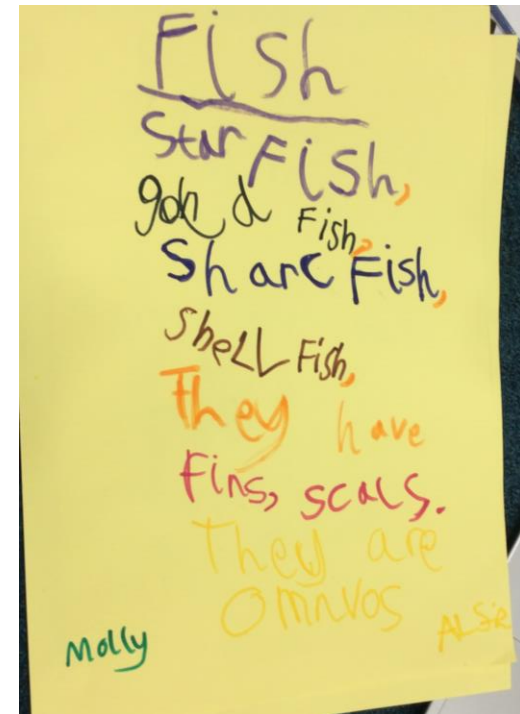 Fish
Star Fish,
gold Fish,
Sharc Fish,
Shell Fish,
They have
Fins, scals.
They are
omnvos
Molly